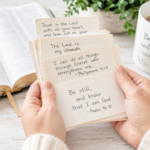 Trust in the Lord
with all your heart,
and lean not on your
The Lord is
my strength
I can do all things
through Christ who
strengthens me.
Philippians 4:13
Be still,
and know
that I am God
Psalm 46:10
Be